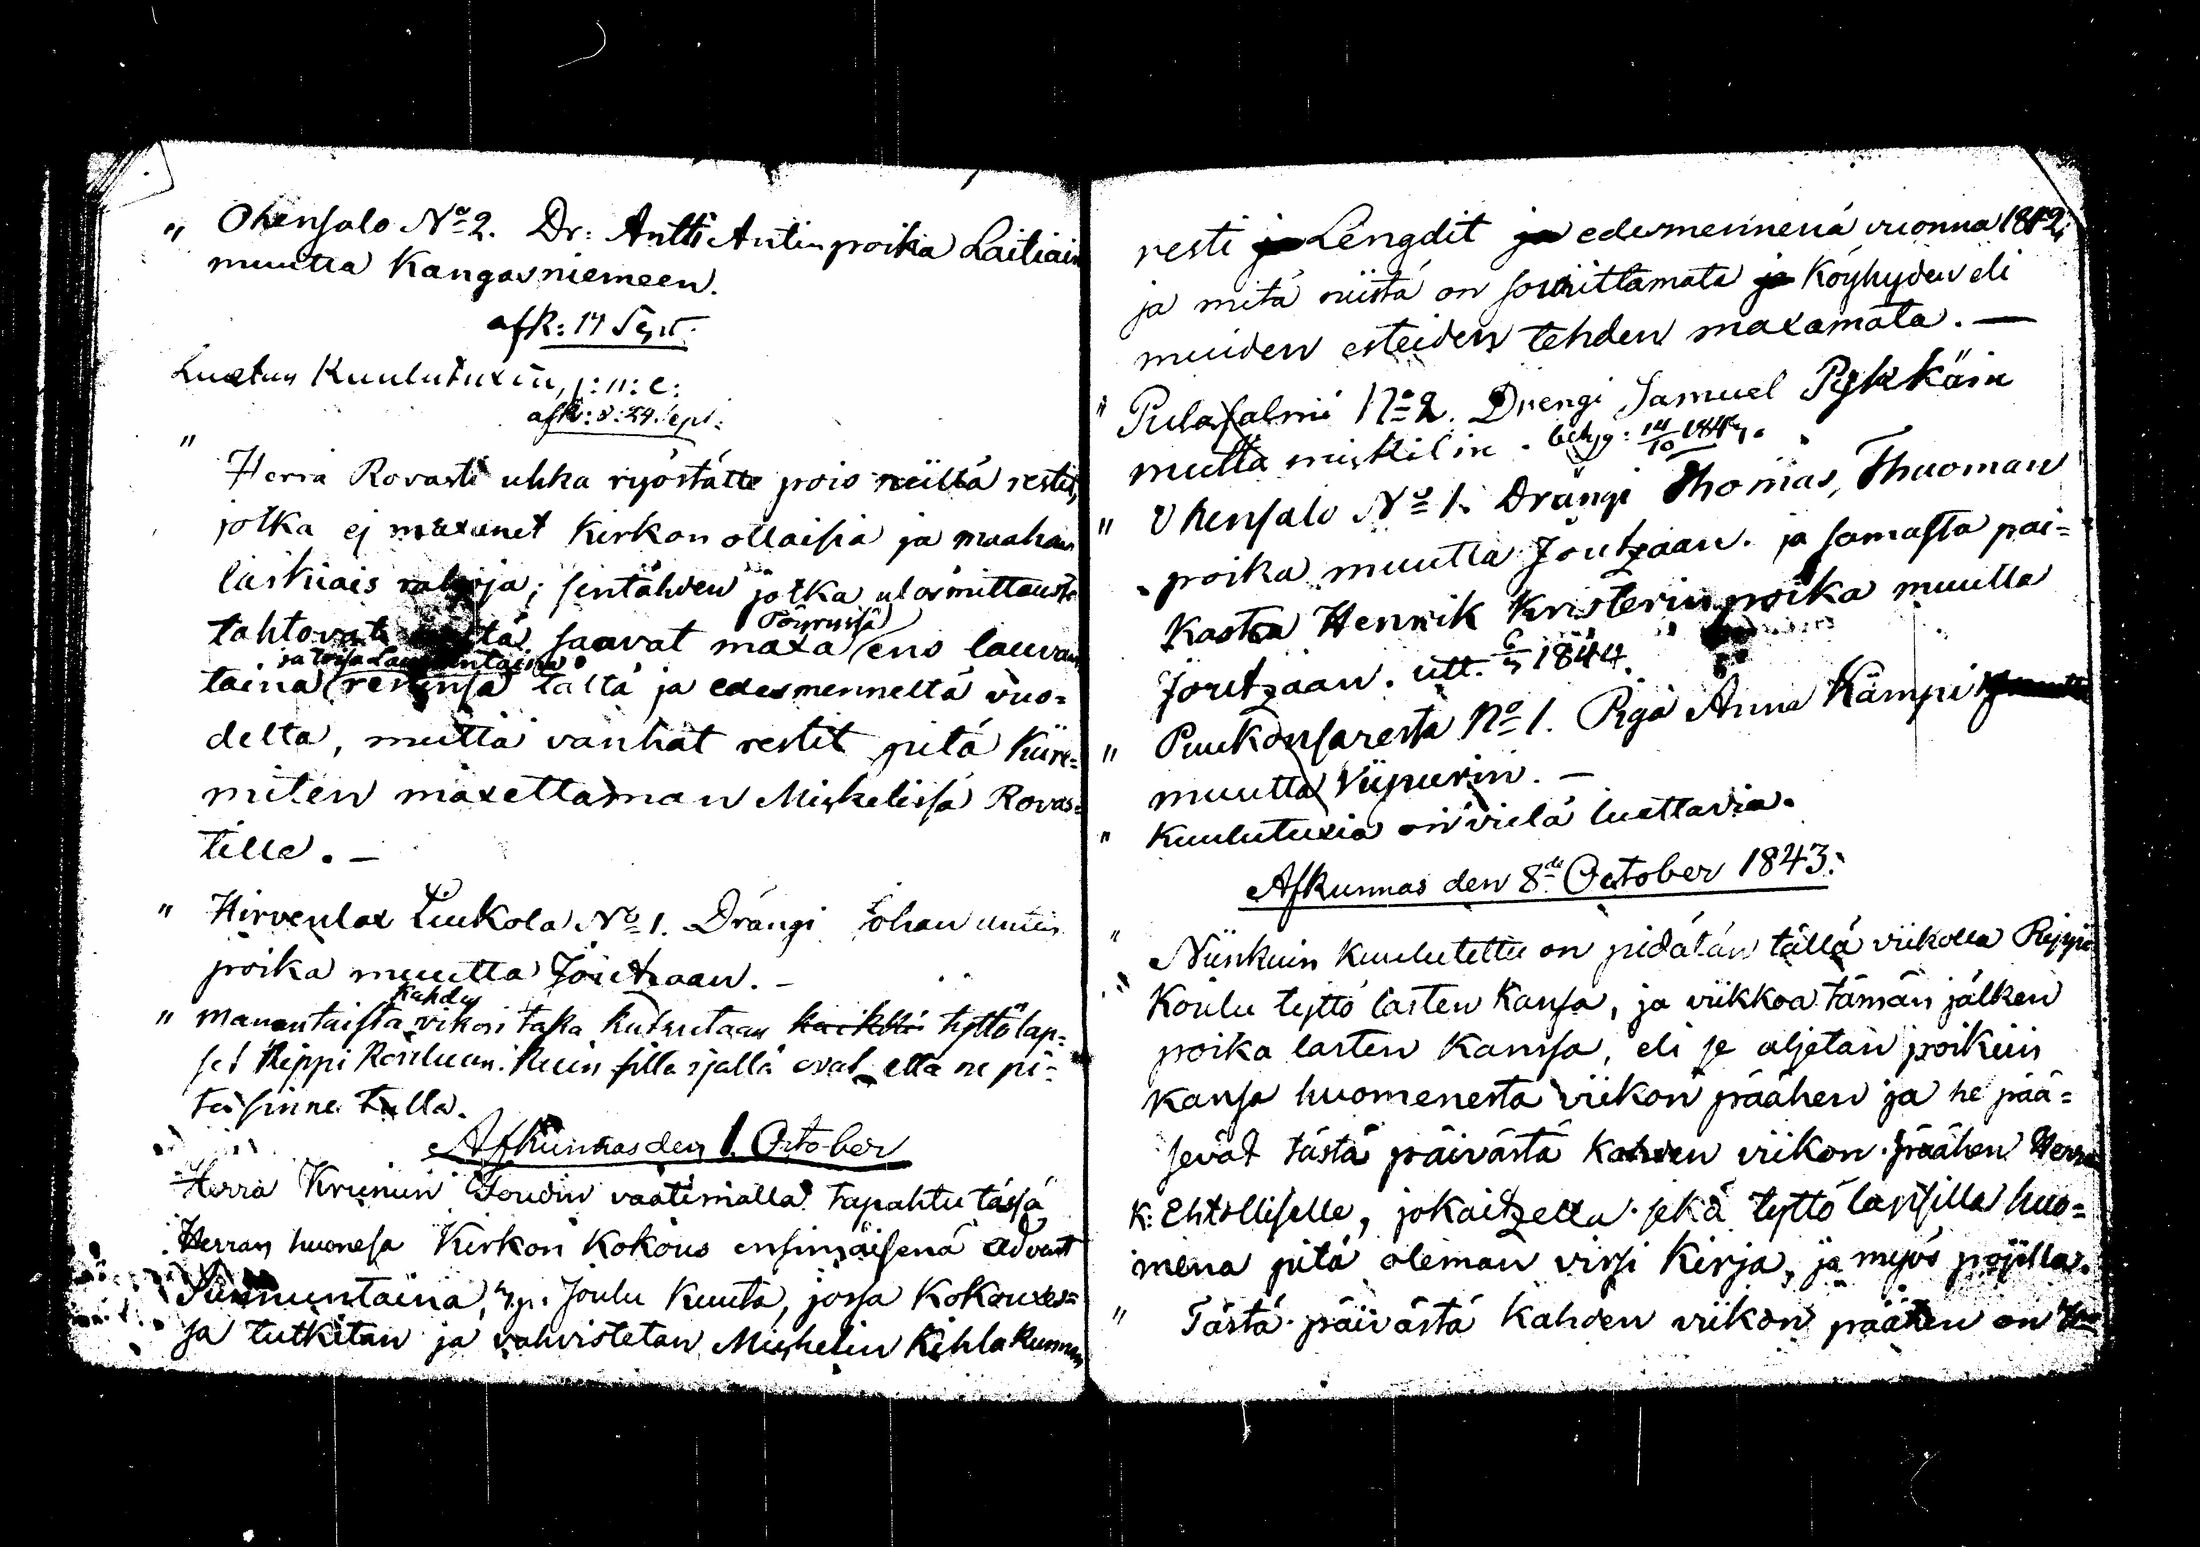 " Ohensalo No 2. Dr: Antti Antinpoika Laitiain
muutta Kangasniemeen.
afk: 17 Sept.
Luetun Kuulutuxiin,
afk: d: 24 Sept:
" Herra Rovasti uhka ryöstättä pois niiltä restit,
jotka ej maxanet Kirkon ollaisia ja maahan
laskiais rahoja; sentähden jotka ulosmittausta
tahtovat saavat maxa (ens lauvan
Töyryssä
ja tossa Lauvantaina
taina restinsä tältä ja edesmenneltä vuo=
delta, mutta vanhat restit pitä Kiire=
miten maxettaman Mickelissä Rovas=
tille. —
" Hirvenlax Luukola No 1. Drängi Johan Antin
poika muutta Joutzaan. —
Kahden
" Manantaista vikon taka kutsutaan kaikkia tyttölap=
set Rippi Kouluun. Kuin sillä ijällä ovat että ne pi=
tä sinne tulla.
Afkunnas den 1. October
Herra Kruunun Foudin vaatimalla tapahtu tässä
Herran huonesa Kirkon Kokous ensimäisenä advent
Sunnuntaina, 3. p. Joulu Kuuta, jossa Kokouxes=
sa tutkitan ja vahvistetan Mickelin Kihlakunnan
resti ja Lengdit ja edesmennenä vuonna 1842,
ja mitä niistä on suorittamata ja Köyhyden eli
muiden esteiden tehden maxamata. —
" Pulasalmi No 2. Drengi Samuel Pykkäin
mutta mickelin. betyg: 14/10 1844.
" Ohensalo No 1. Drängi Thomas, Thuoman
poika muutta Joutzaan. ja samasta pai=
kasta Henrik Kristerin poika muutta
Joutzaan. utt. 1844.
" Puukonsaresta No 1. Piga Anna Kämpi
muutta Viipurin. —
" Kuulutuxia on vielä luettavia.
Afkunnas den 8de October 1843.
" Niinkuin Kuulutettu on pidätän tällä viikolla Rippi
Koulu tyttö lasten Kansa, ja viikkoa tämän jälken
poika lasten Kanssa, eli se aljetan poikiin
kansa huomenesta viikon päähen ja he pää=
sevät tästä päivästä kahden viikon päähen Herra
K: Ehtolliselle, jokaitzella sekä tyttö lapsilla huo=
mena pitä oleman virsi Kirja, ja myös pojilla.
" Tästä päivästä Kahden viikon päähen on